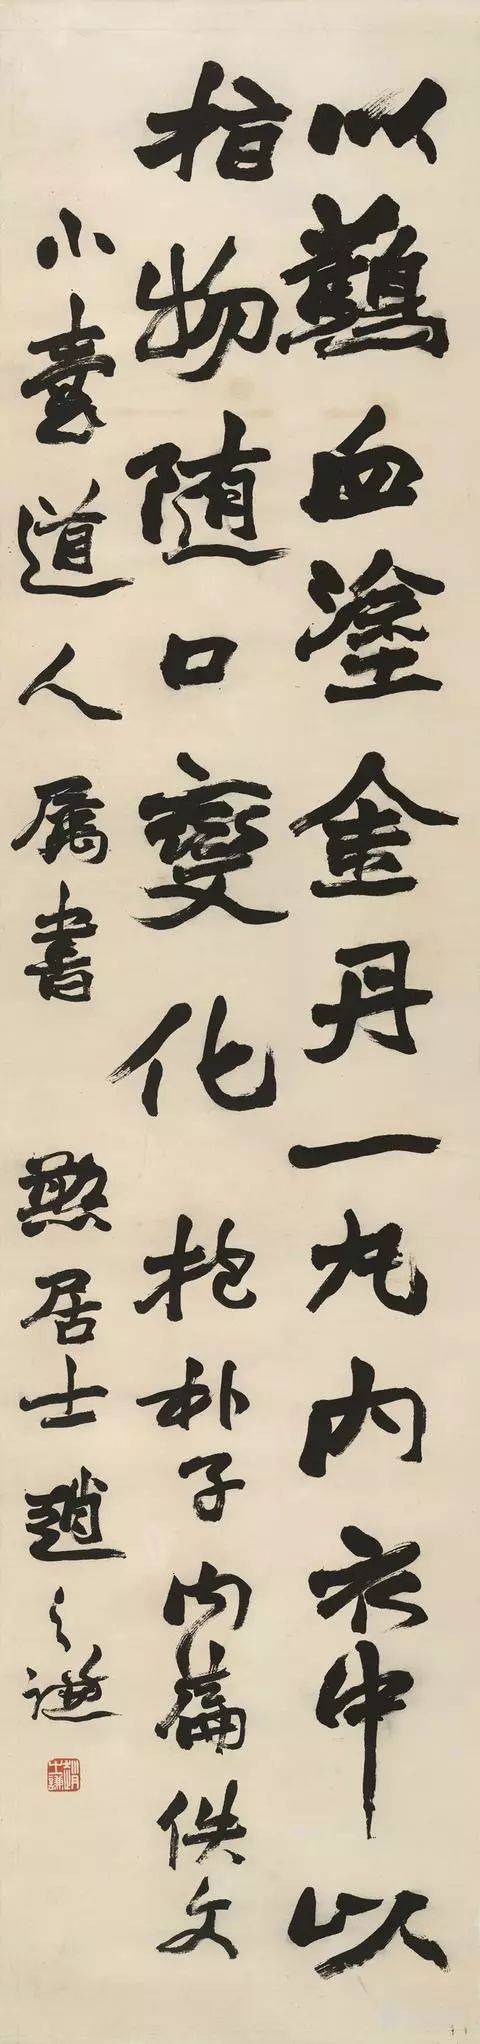 以鸛血塗金丹一丸内衣中以
指物随口變化 抱朴子内篇佚文
小道人属書 憨居士趙之謙